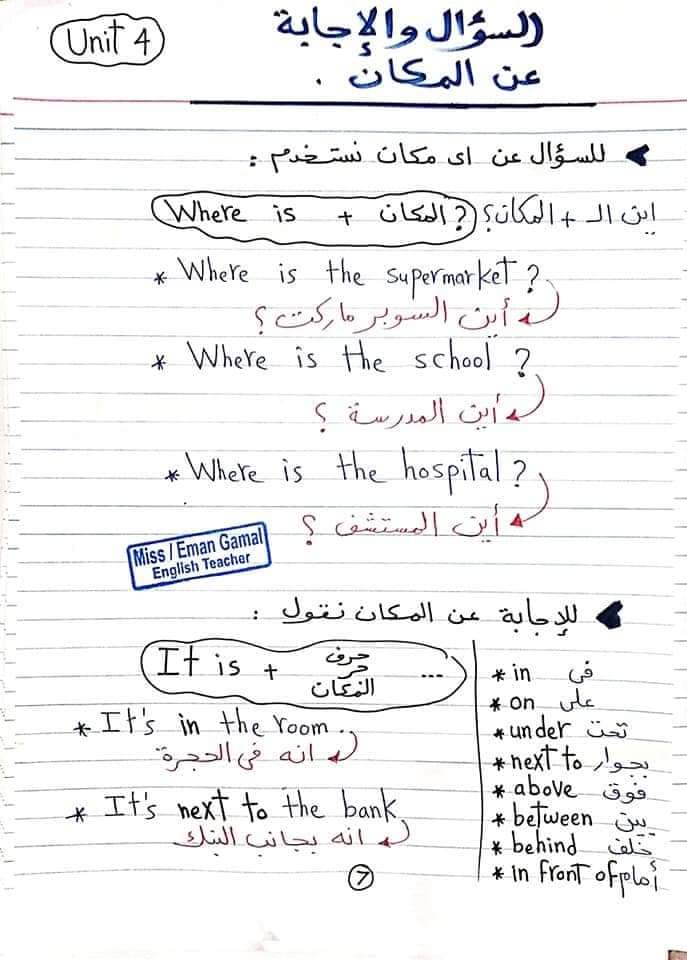 Unit 4
السؤال والإجابة
عن المكان .
للسؤال عن اى مكان نستخدم :
اين الـ + المكان؟ (Where is + المكان ?)
* Where is the supermarket ?
أين السوبر ماركت ؟
* Where is the school ?
أين المدرسة ؟
* Where is the hospital ?
أين المستشفى ؟
Miss / Eman Gamal
English Teacher
للإجابة عن المكان نقول :
It is + حرف جر المكان ...
* It's in the room.
انه فى الحجرة
* It's next to the bank.
انه بجانب البنك
* in فى
* on على
* under تحت
* next to بجوار
* above فوق
* between بين
* behind خلف
* in front of أمام
7